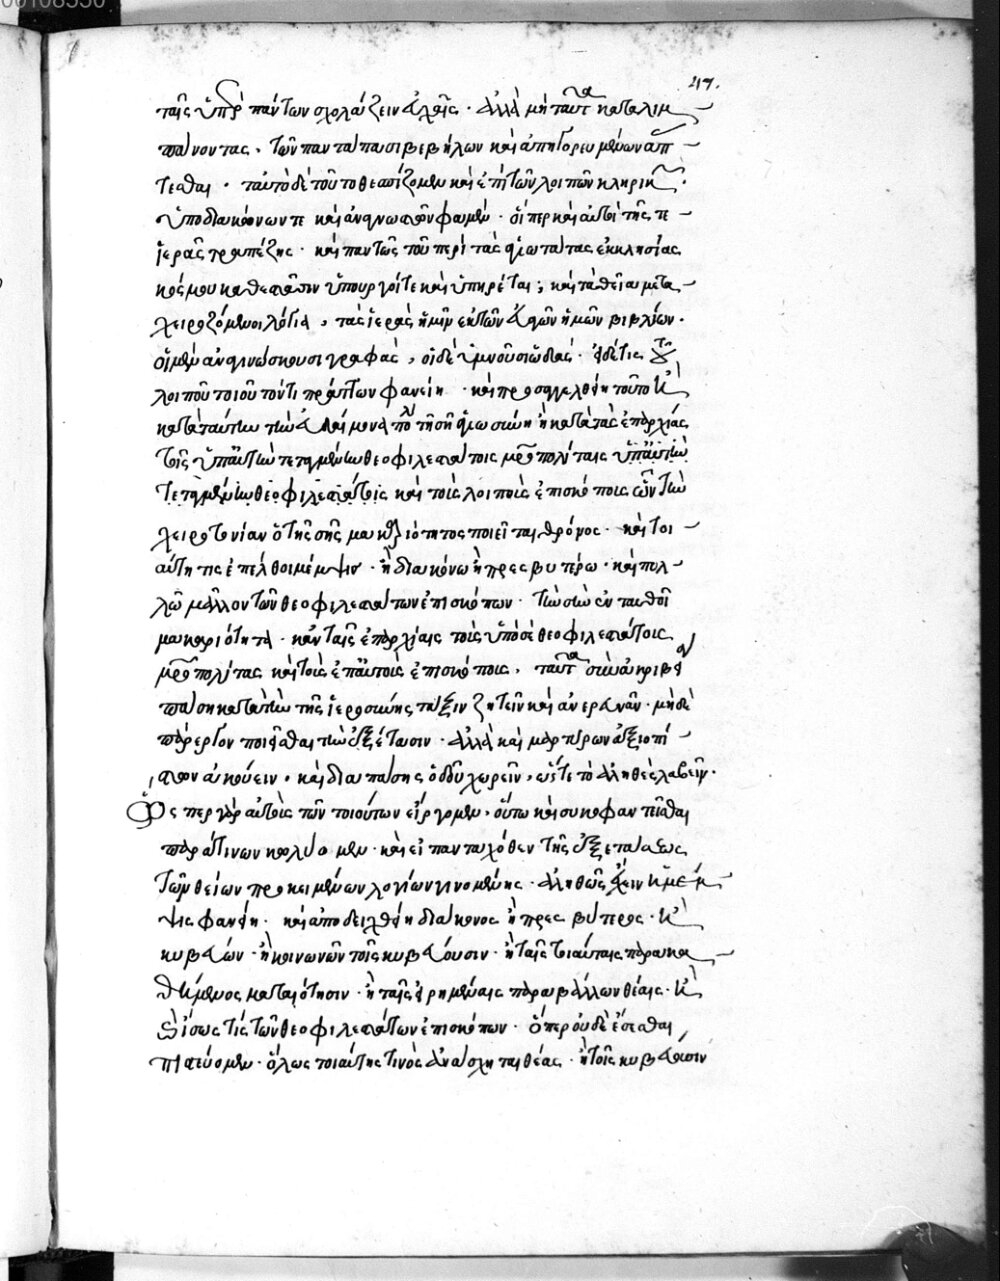 417.
ταῖς ὑπὲρ πάντων σχολάζειν εὐχαῖς · ἀλλὰ μὴ ταῦτα καταλιμ
πάνοντας, τῶν παντάπασι βεβήλων καὶ ἀπηγορευμένων ἅπ
τεσθαι · ταὐτὸ δὲ τοῦτο θεσπίζομεν καὶ ἐπὶ τῶν λοιπῶν κληρικῶν ·
ὑποδιακόνων τε καὶ ἀναγνωστῶν φαμὲν · οἵπερ καὶ αὐτοὶ τῆς τε
ἱερᾶς τραπέζης · καὶ παντὸς τοῦ περὶ τὰς ἁγιωτάτας ἐκκλησίας
κόσμου καθεστᾶσιν ὑπουργοί τε καὶ ὑπηρέται · καὶ τὰ θεῖα μετα
χειριζόμενοι λόγια, τὰς ἱερὰς ἡμῖν ἐκ τῶν ἁγίων ἡμῶν βιβλίων ·
οἱ μὲν ἀναγινώσκουσι γραφάς, οἱ δὲ ὑμνοῦσι ᾠδάς · εἰ δέ τις τοῦ
λοιποῦ τοιοῦτόν τι πράττων φανείη · καὶ προσαγγελθείη τοῦτο ἢ
κατὰ ταύτην τὴν εὐδαίμονα πόλιν τῇ σῇ ἁγιωσύνῃ ἢ κατὰ τὰς ἐπαρχίας
τοῖς ὑπ' αὐτὴν τεταγμένων θεοφιλεστάτοις μητροπολίταις ὑπ' αὐτὴν
τεταγμένων θεοφιλεστάτοις καὶ τοῖς λοιποῖς ἐπισκόποις ὧν τὴν
χειροτονίαν ὁ τῆς σῆς μακαριότητος ποιεῖται θρόνος · καὶ τοι
αύτη τις ἐπέλθοι μέμψιν · ἢ διακόνῳ ἢ πρεσβυτέρῳ · καὶ πολ
λῷ μᾶλλον τῶν θεοφιλεστάτων ἐπισκόπων · τὴν σὴν ἐνταυθοῖ
μακαριότητα · κἀν ταῖς ἐπαρχίαις τοῖς ὑπὸ σὲ θεοφιλεστάτοις
μητροπολίτας καὶ τοῖς ἐπ' αὐτοῖς ἐπισκόποις, ταῦτα σὺν ἀκριβείᾳ
πάσῃ κατὰ τὴν τῆς ἱερωσύνης τάξιν ζητεῖν καὶ ἀνερευνᾶν · μὴ δὲ
πάρεργον ποιεῖσθαι τὴν ἐξέτασιν · ἀλλὰ καὶ μαρτύρων ἀξιοπί
στων ἀκούειν, καὶ διὰ πάσης ὁδοῦ χωρεῖν, ὥστε τὸ ἀληθὲς λαβεῖν ·
ὥσπερ γὰρ αὐτοὺς τῶν τοιούτων εἴργομεν, οὕτω καὶ συκοφαντεῖσθαι
παρά τινων κωλύομεν · καὶ εἰ πανταχόθεν τῆς ἐξετάσεως
τῶν θείων προκειμένων λογίων γινομένης · ἀληθῶς ἔχειν ἡ μέμ
ψις φανῇ · καὶ ἀποδειχθῇ διάκονος ἢ πρεσβύτερος · ἢ
κυβεύων · ἢ κοινωνῶν τοῖς κυβεύουσιν · ἢ ταῖς τοιαύταις παρακα
θήμενος ματαιότησιν · ἢ ταῖς εἰρημέναις παραβάλλων θέαις · ἢ
καὶ ἴσως τὶς τῶν θεοφιλεστάτων ἐπισκόπων · ὅπερ οὐδὲ ἔσεσθαι
πιστεύομεν · ὅλως τοιαύτης τινὸς ἀνάσχηται θέας · ἢ τοῖς κυβεύουσιν